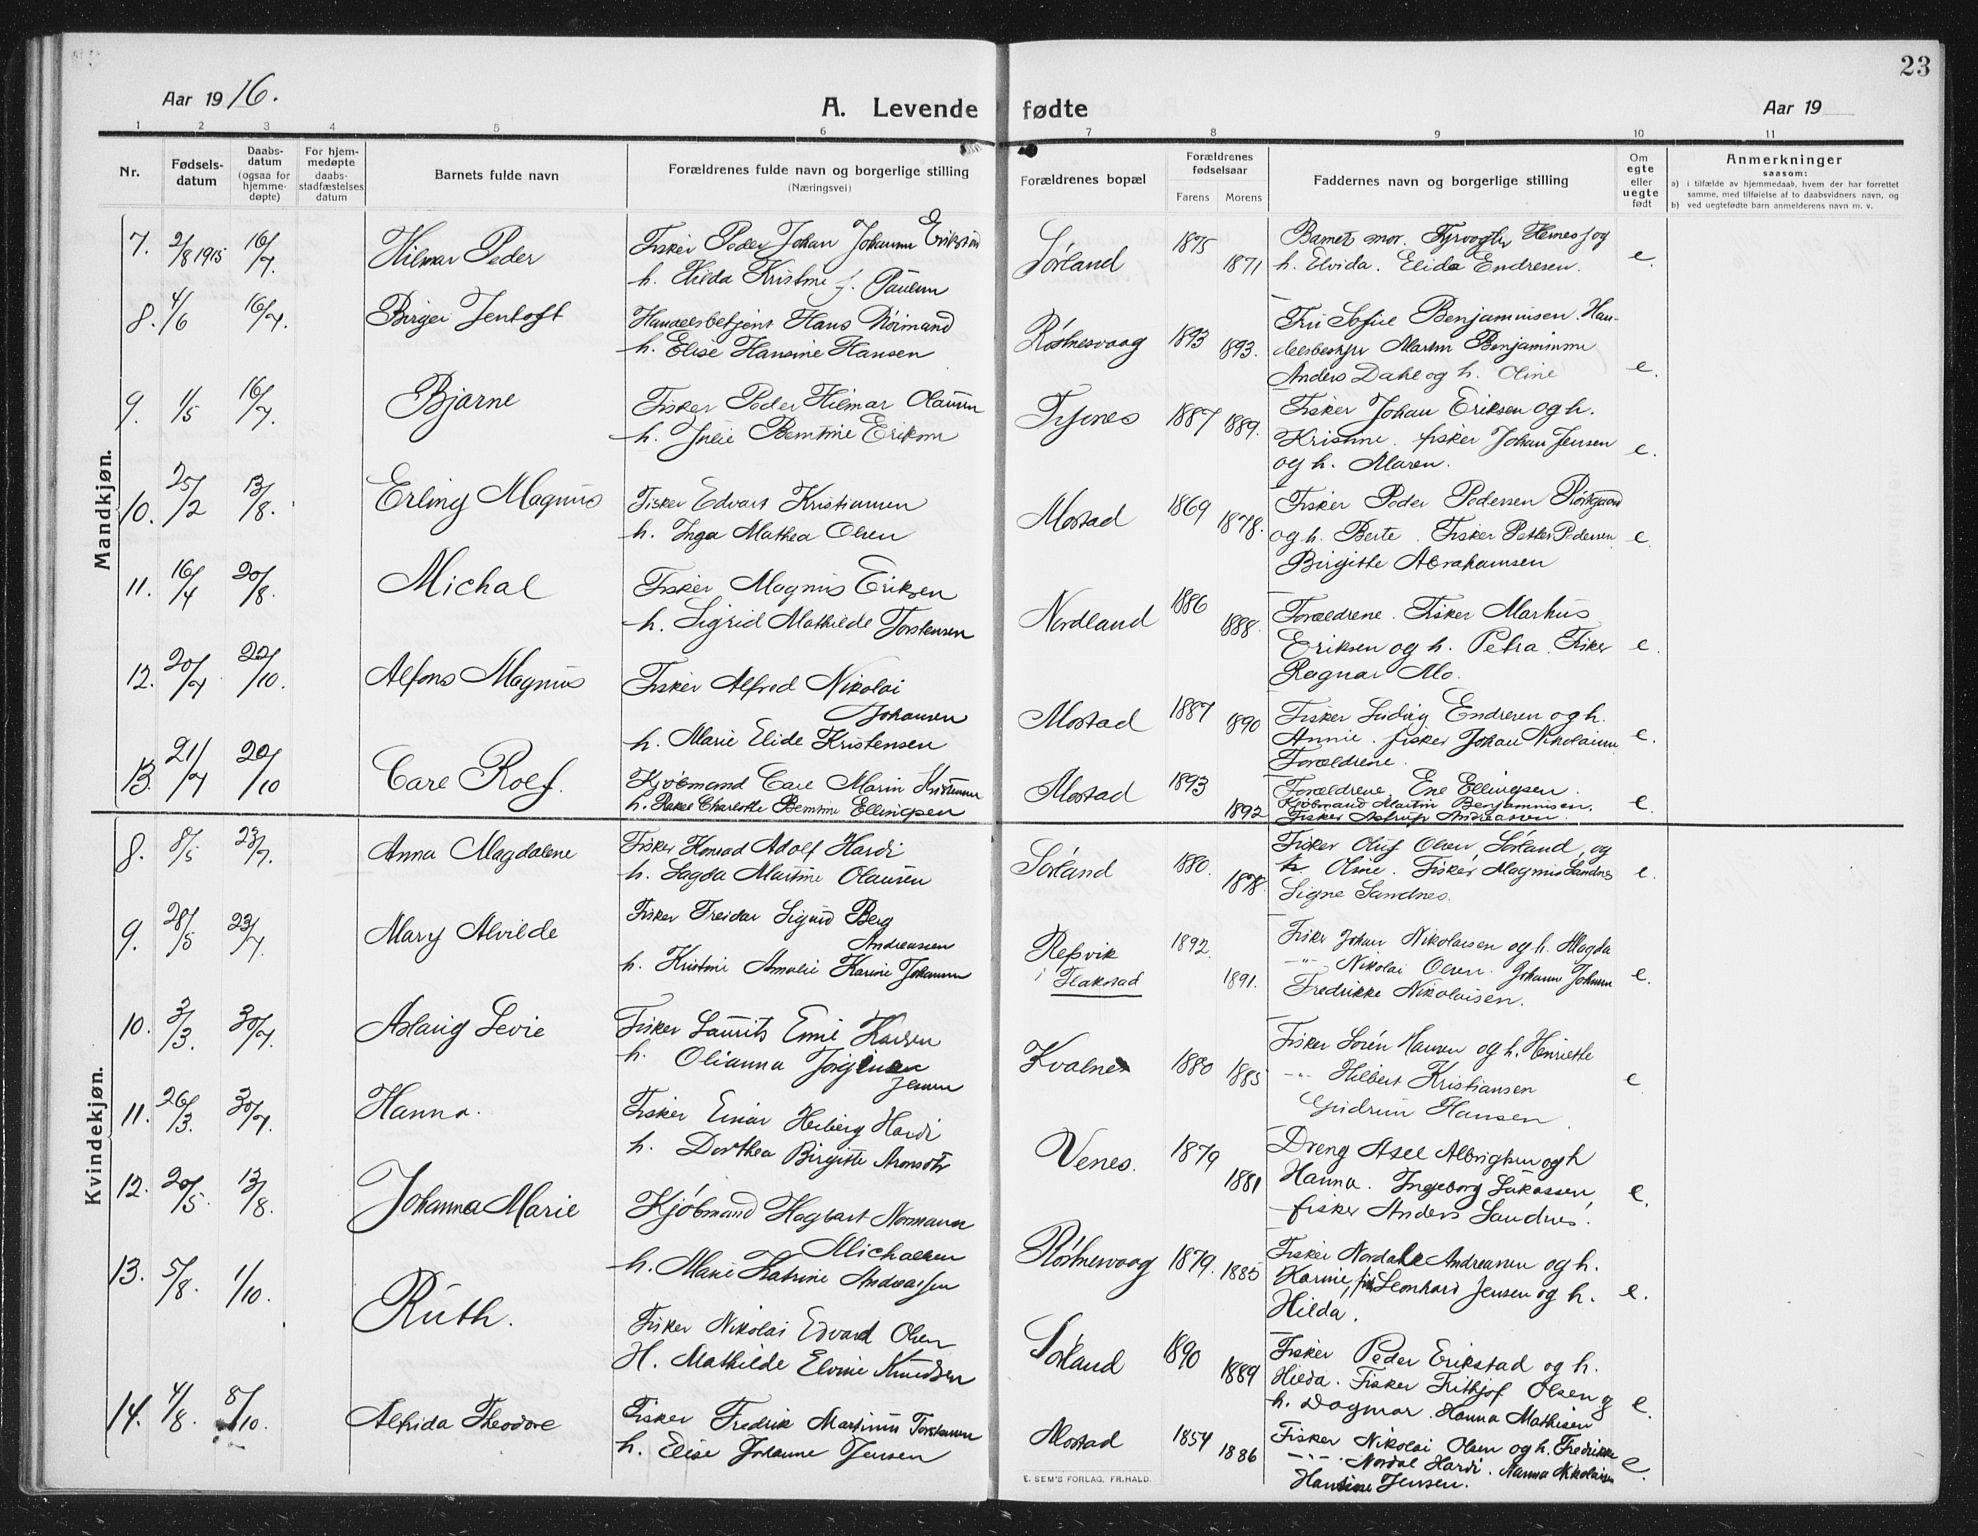 23
Aar 19 16.
A. Levende fødte
Aar 19
1 2 3 4 5 6 7 8 9 10 11
Nr.
Fødsels-
datum
Daabs-
datum
(ogsaa for
hjemme-
døpte)
For hjem-
medøpte
daabs-
stadfæstelses
datum
Barnets fulde navn
Forældrenes fulde navn og borgerlige stilling
(Næringsvei)
Forældrenes bopæl
Forældrenes
fødselsaar
Farens Morens
Faddernes navn og borgerlige stilling
Om
egte
eller
uegte
født
Anmerkninger
saasom:
a) i tilfælde av hjemmedaab, hvem der har forrettet
samme, med tilføielse af to daabsvidners navn, og
b) ved uegtefødte barn anmelderens navn m. v.
Mandkjøn.
7. 2/8 1915 16/7 Hilmar Peder
Fisker Peder Johan Johannes Erikstad
h. Hilda Kristine f. Paulsen
Sørland 1875 1871
Barnets mor. Fyrvogter Hernes og
h. Elvida. Elida Endresen. e.
8. 4/6 16/7. Birger Jentoft
Handelsbetjent Hans Normand
h. Elise Hansine Hansen
Røstnesvaag 1893 1893.
Fru Sofie Benjaminsen. Han-
delsbestyr Martin Benjaminsen
Anders Dahl og h. Oline e.
9. 1/5 16/7. Bjarne
Fisker Peder Hilmar Olausen
h. Julie Berntine Eriksen
Tyvnes 1887 1889.
Fisker Johan Eriksen og h.
Kristine. fisker Johan Jensen
og h. Maren. e.
10. 25/2 13/8. Erling Magnus
Fisker Edvart Kristiansen
h. Inga Mathea Olsen
Mostad 1869 1878.
Fisker Peder Pedersen Røstgaard
og h. Berte. Fisker Petter Pedersen
Birgitte Abrahamsen e.
11. 16/4 20/8. Michal
Fisker Magnus Eriksen
h. Sigrid Mathilde Torstensen
Nordland 1886 1888.
Forældrene. Fisker Markus
Eriksen og h. Petra. Fisker
Ragnar Mo. e.
12. 20/7 22/10. Alfons Magnus
Fisker Alfred Nikolai
Johansen
h. Marie Elide Kristensen
Mostad 1887 1890
Fisker Ludvig Endresen og h.
Annie. fisker Johan Nikolaisen
Forældrene. e.
13. 21/7 22/10 Carl Rolf.
Kjøbmand Carl Marin Kristensen
h. Rakel Charlotte Berntine Ellingsen
Mostad 1893 1892
Forældrene. Ene Ellingsen.
Kjøbmand Martin Benjaminsen.
Fisker Astrup Andreassen. e.
Kvindekjøn.
8. 8/5 23/7. Anna Magdalene
Fisker Konrad Adolf Hardi
h. Lagda Martine Olausen
Sørland 1880. 1878.
Fisker Oluf Olsen Sørland, og
h. Oline. Fisker Magnus Sandnes
Signe Sandnes. e.
9. 28/5 23/7 Mary Alvilde
Fisker Freidar Sigurd Berg
Andreassen
h. Kristine Amalie Karine Johansen
Refsvik
i Flakstad
1892. 1891.
Fisker Johan Nikolaisen og h. Magda
-"- Nikolai Olsen. Johanne Johansen
Fredrikke Nikolaisen. e.
10. 3/3. 30/7. Aslaug Levie
Fisker Laurits Emil Karlsen
h. Olianna Jørgine
Jensen
Kvalnes 1880 1885
Fisker Søren Hansen og h. Henriette
-"- Hilbert Kristiansen
Gudrun Hansen. e
11. 26/3. 30/7. Hanna.
Fisker Einar Heiberg Hardi
h. Dorthea Birgitte Aronsdtr
Venes. 1879 1881
Dreng Axel Albrigtsen og h
Hanna. Ingeborg Lukassen,
fisker Anders Sandnes. e.
12. 20/5. 13/8. Johanna Marie
Kjøbmand Hagbart Normann
Michalsen
h. Marie Katrine Andreassen
Røstnesvaag 1879. 1885
Fisker Nordahl Andreassen og h.
Karine, fisk Leonhard Jensen og h.
Hilda. e.
13. 5/8. 1/10. Ruth.
Fisker Nikolai Edvard Olsen
H. Mathilde Elvine Knudsen
Sørland 1890 1889
Fisker Peder Erikstad og h.
Hilda. Fisker Frithjof Olsen og
h. Dagmar. Hanna Mathisen e.
14. 4/8. 8/10. Alfrida Theodore
Fisker Fredrik Martinus Torstensen
h. Elise Johanne Jensen
Mostad 1854 1886
Fisker Nikolai Olsen og h. Fredrikke
-"- Nordal Hardi. Nanna Nikolaisen
Hansine Jensen. e.
E. SEM'S FORLAG, FR.HALD.